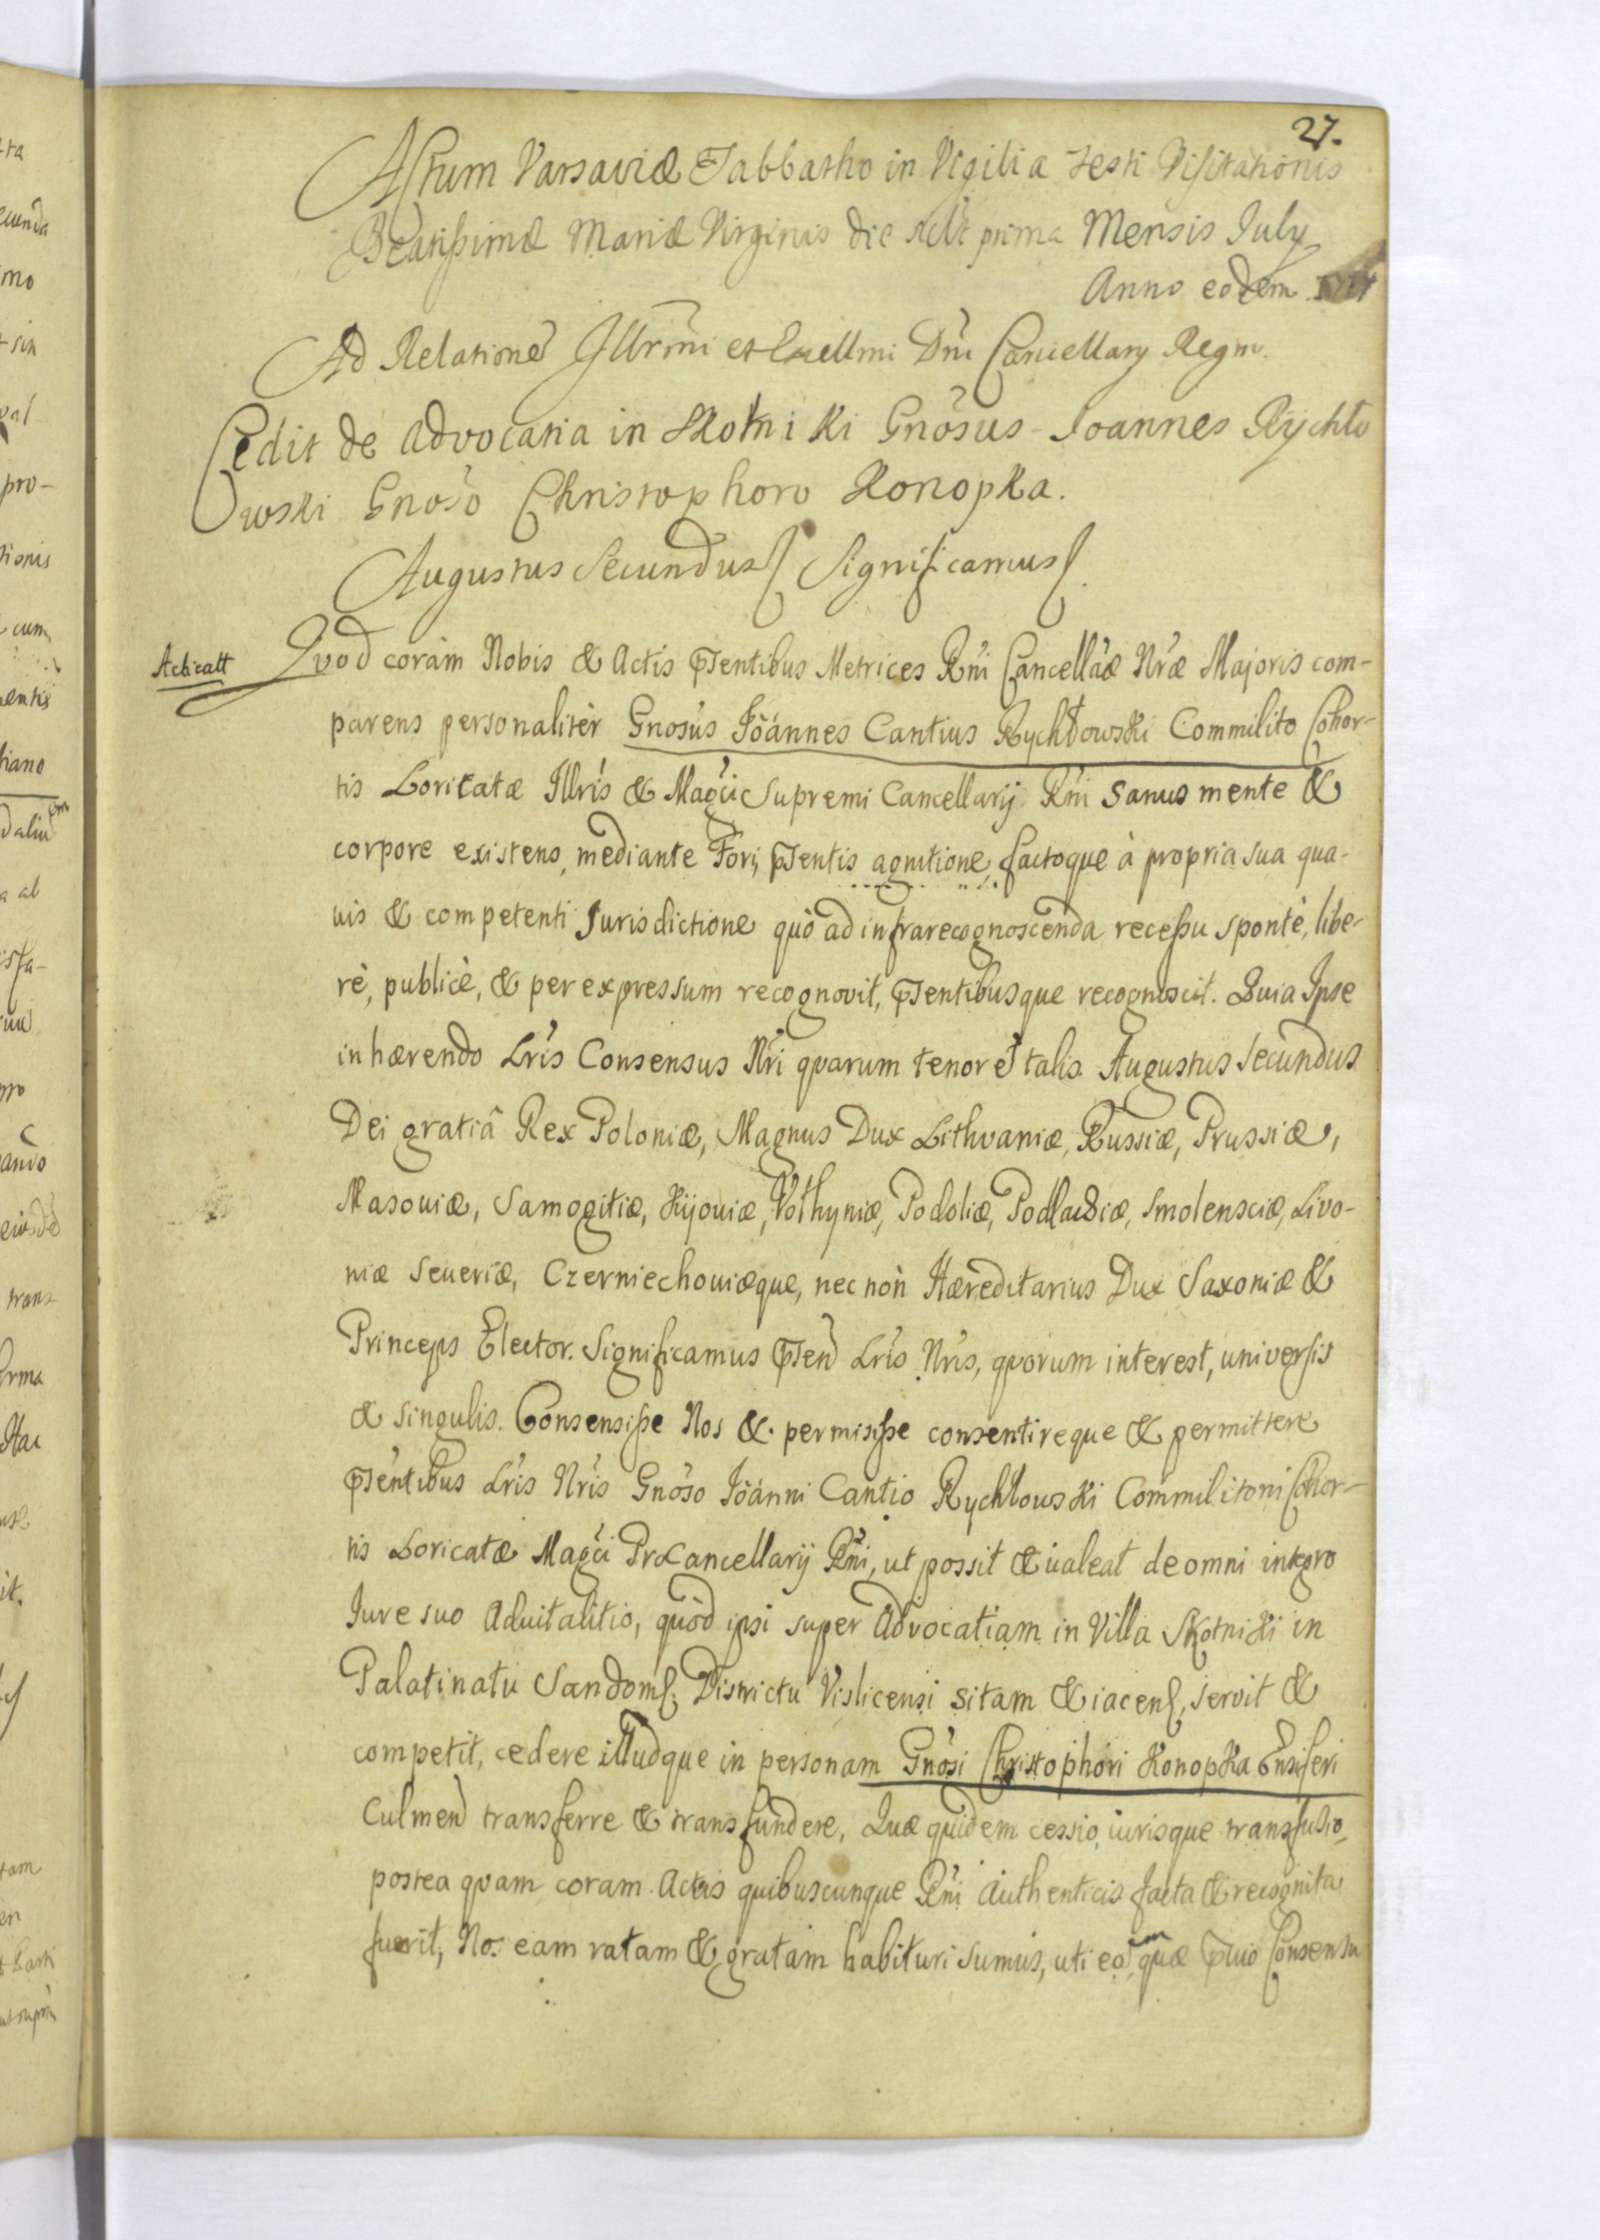 27.
Actum Varsaviæ Sabbatho in Vigilia Festi Visitationis
Beatissimæ Mariæ Virginis die scilt prima Mensis July
Anno eodem
Ad Relatione Illrmi et Excellmi Dni Cancellary Regni
Cedit de advocatia in Skotniki Gnosus Joannes Rychło
wski Gnoso Christophoro Konopka.
Augustus Secundus Significamus
Acticatt
Qvod coràm Nobis & Actis Pñtentibus Metrices Rñi Cancellãæ Nræ Majoris com-
parens personalitèr Gnosus Joánnes Cantius Rychłowski Commilito Cohor-
tis Loricatæ Illris & Magci Supremi Cancellarij Rñi Sanus mente &
corpore existens, mediante Fori, psentis agnitione, factoque à propria sua qua-
uis & competenti Jurisdictione quò ad infrarecognoscenda recessu spontè, libe-
rè, publicè, & per expressum recognovit, psentibusque recognoscit. Quia Ipse
inhærendo Lris Consensus Nri qvarum tenor e talis. Augustus Secundus
Dei gratiâ Rex Poloniæ, Magnus Dux Lithvaniæ, Russiæ, Prussiæ,
Masoviæ, Samogitiæ, Kijoviæ, Vołhyniæ, Podoliæ, Podlachiæ, Smolensciæ, Livo-
niæ Severiæ, Czerniechoviæque, nec non Hæreditarius Dux Saxoniæ &
Princeps Elector. Significamus psen Lris Nris, qvorum interest, universis
& singulis. Consensisse Nos & permisisse consentireque & permittere
psentibus Lris Nris Gnoso Joánni Cantio Rychłowski Commilitoni Cohor-
tis Loricatæ Magci ProCancellarij Rñi, ut possit & valeat de omni integro
Jure suo Aduitalitio, quòd ipsi super Advocatiam in Villa Skotniki in
Palatinatu Sandom. Districtu Vislicensi sitam & iacen, servit &
competit, cedere illudque in personam Gnosi Christophori Konopka Ensiferi
Culmen transferre & transfundere, Quæ quidem cessio, iurisque transfusio,
postea qvam coram Actis quibuscunque Rñi Authenticis facta & recognita
fuerit, Nos eam ratam & gratam habituri sumus, uti eam quæ pvio Consensu